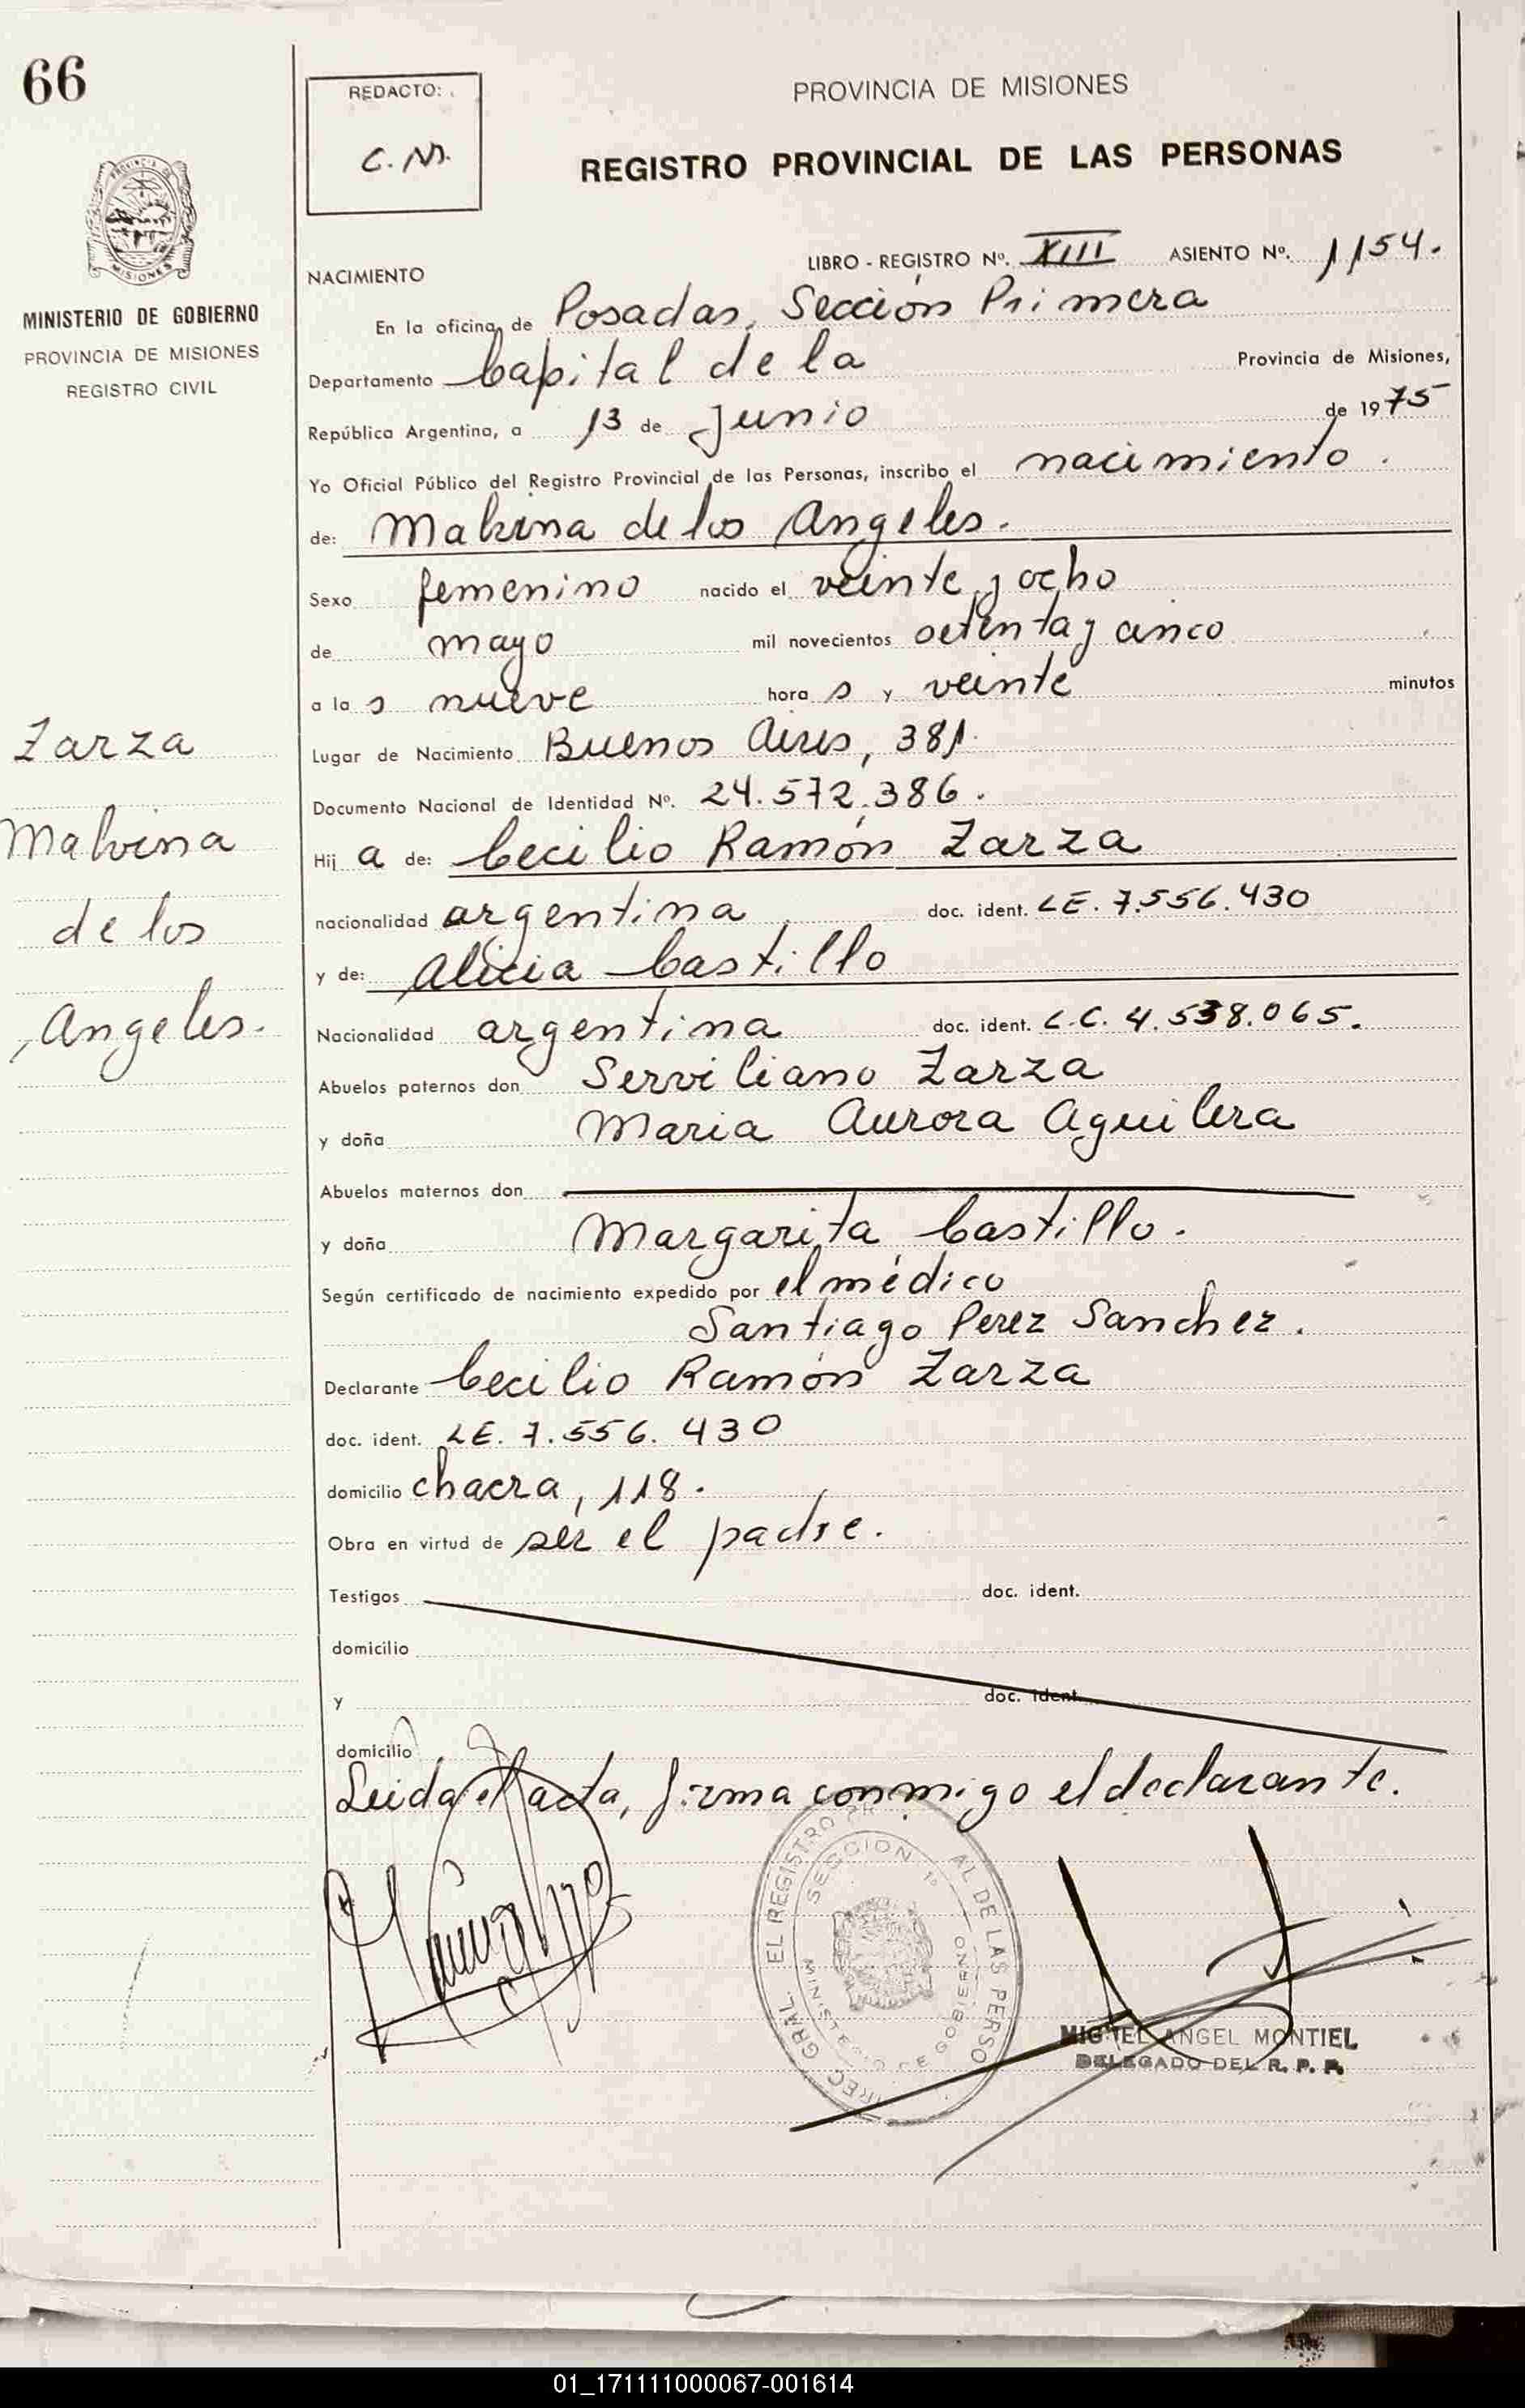 66
REDACTO:
C. M.
PROVINCIA DE MISIONES
REGISTRO PROVINCIAL DE LAS PERSONAS
MISIONES
MINISTERIO DE GOBIERNO
PROVINCIA DE MISIONES
REGISTRO CIVIL
LIBRO - REGISTRO Nº. XIII ASIENTO Nº. 1154.
NACIMIENTO
En la oficina de Posadas, Sección Primera
Departamento Capital de la Provincia de Misiones,
República Argentina, a 13 de Junio de 1975
Yo Oficial Público del Registro Provincial de las Personas, inscribo el nacimiento.
de: Malvina de los Angeles.
Sexo femenino nacido el veinte y ocho
de mayo mil novecientos setenta y cinco
a la s nueve hora s y veinte minutos
Lugar de Nacimiento Buenos Aires, 381.
Documento Nacional de Identidad Nº. 24.572.386.
Hij a de: Cecilio Ramón Zarza
nacionalidad argentina doc. ident. LE. 7.556.430
y de: Alicia Castillo
Nacionalidad argentina doc. ident. L.C. 4.538.065.
Abuelos paternos don Serviliano Zarza
y doña Maria Aurora Aguilera
Abuelos maternos don
y doña Margarita Castillo.
Según certificado de nacimiento expedido por el médico
Santiago Perez Sanchez.
Declarante Cecilio Ramón Zarza
doc. ident. LE. 7.556.430
domicilio chacra, 118.
Obra en virtud de ser el padre.
Testigos doc. ident.
domicilio
y doc. ident.
domicilio
Leida el acta, firma conmigo el declarante.
Zarza
Malvina
de los
Angeles.
SECCION 1º
MINISTERIO DE GOBIERNO
MIGUEL ANGEL MONTIEL
DELEGADO DEL R. P. P.
01_171111000067-001614